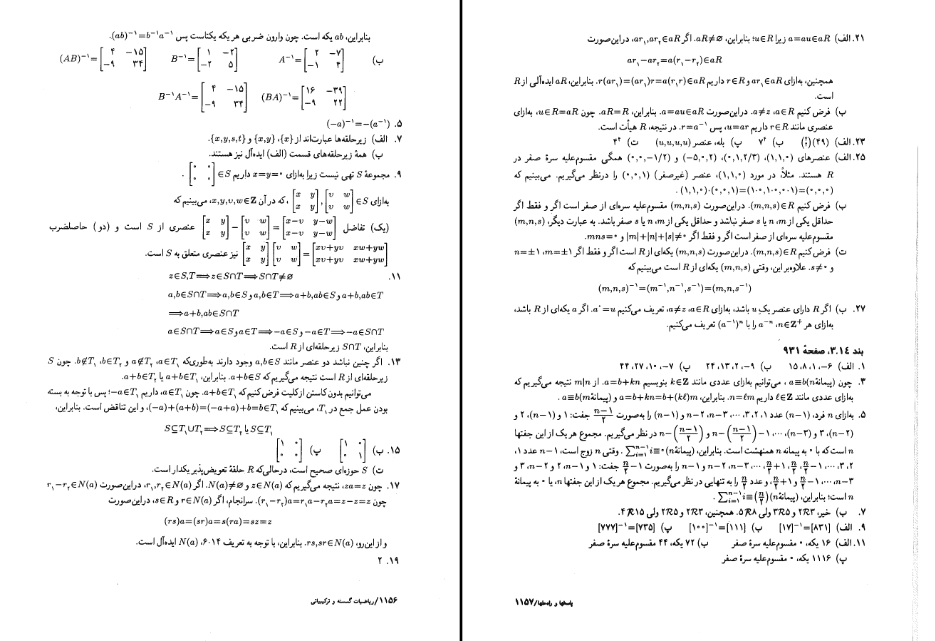 بنابراین، ab یکه است. چون وارون ضربی هر یکه یکتاست پس (ab)⁻¹=b⁻¹a⁻¹.
ب) A⁻¹=[۲ −۷; −۱ ۴] B⁻¹=[۱ −۲; −۲ ۵] (AB)⁻¹=[۴ −۱۵; −۹ ۳۴]
(BA)⁻¹=[۱۶ −۳۹; −۹ ۲۲] B⁻¹A⁻¹=[۴ −۱۵; −۹ ۳۴]
۵. (−a)⁻¹=−(a⁻¹)
۷. الف) زیرحلقه‌ها عبارت‌اند از {x}، {x,y} و {x,y,s,t}.
ب) همهٔ زیرحلقه‌های قسمت (الف) ایده‌آل نیز هستند.
۹. مجموعهٔ S تهی نیست زیرا به‌ازای x=y=۰ داریم [۰ ۰; ۰ ۰]∈S.
به‌ازای [x y; x y], [v w; v w]∈S، که در آن x,y,v,w∈Z، می‌بینیم که
(یک) تفاضل [x y; x y]−[v w; v w]=[x−v y−w; x−v y−w] عنصری از S است و (دو) حاصلضرب
[x y; x y][v w; v w]=[xv+yv xw+yw; xv+yv xw+yw] نیز عنصری متعلق به S است.
۱۱. z∈S,T⟹z∈S∩T⟹S∩T≠∅
a,b∈S∩T⟹a,b∈S و a,b∈T⟹a+b,ab∈S و a+b,ab∈T
⟹a+b,ab∈S∩T
a∈S∩T⟹a∈S و a∈T⟹−a∈S و −a∈T⟹−a∈S∩T
بنابراین، S∩T زیرحلقه‌ای از R است.
۱۳. اگر چنین نباشد دو عنصر مانند a,b∈S وجود دارند به‌طوری‌که a∈T₁، a∉T₂ و b∈T₂، b∉T₁. چون S
زیرحلقه‌ای از R است نتیجه می‌گیریم که a+b∈S. بنابراین، a+b∈T₁ یا a+b∈T₂.
می‌توانیم بدون کاستن از کلیت فرض کنیم که a+b∈T₁. چون a∈T₁، داریم −a∈T₁؛ پس با توجه به بسته
بودن عمل جمع در T₁، می‌بینیم که (−a)+(a+b)=(−a+a)+b=b∈T₁، و این تناقض است. بنابراین،
S⊆T₁∪T₂⟹S⊆T₁ یا S⊆T₂
۱۵. ب) [۱ ۰; ۰ ۱] پ) [۱ ۰; ۰ ۰]
ت) S حوزه‌ای صحیح است، درحالی‌که R حلقهٔ تعویض‌پذیر یکدار است.
۱۷. چون za=z، نتیجه می‌گیریم که z∈N(a) و N(a)≠∅. اگر r₁,r₂∈N(a)، دراین‌صورت r₁−r₂∈N(a)
چون (r₁−r₂)a=r₁a−r₂a=z−z=z. سرانجام، اگر r∈N(a) و s∈R، دراین‌صورت
(rs)a=(sr)a=s(ra)=sz=z
و از این‌رو، rs,sr∈N(a). بنابراین، با توجه به تعریف ۶.۱۴، N(a) ایده‌آل است.
۱۹. ۲
۱۱۵۶/ریاضیات گسسته و ترکیبیاتی
۲۱. الف) a=au∈aR زیرا u∈R؛ بنابراین، aR≠∅. اگر ar₁,ar₂∈aR، دراین‌صورت
ar₁−ar₂=a(r₁−r₂)∈aR
همچنین، به‌ازای ar₁∈aR و r∈R داریم r(ar₁)=(ar₁)r=a(r₁r)∈aR. بنابراین، aR ایده‌آلی از R
است.
ب) فرض کنیم a∈R، a≠z. دراین‌صورت a=au∈aR. بنابراین، aR=R. چون u∈R=aR، به‌ازای
عنصری مانند r∈R داریم u=ar، پس r=a⁻¹. در نتیجه، R هیأت است.
۲۳. الف) (۴۹) ب) ۷⁴ پ) بله، عنصر (u,u,u,u) ت) ۴⁴
۲۵. الف) عنصرهای (۱,۱,۰)، (۰,۱,۲/۳)، (−۵,۰,۲) و (۰,۰,−۱/۲) همگی مقسوم‌علیه سرهٔ صفر در
R هستند. مثلاً در مورد (۱,۱,۰)، عنصر (غیرصفر) (۰,۰,۱) را درنظر می‌گیریم. می‌بینیم که
(۱,۱,۰)·(۰,۰,۱)=(۱·۰,۱·۰,۰·۱)=(۰,۰,۰).
پ) فرض کنیم (m,n,s)∈R. دراین‌صورت (m,n,s) مقسوم‌علیه سره‌ای از صفر است اگر و فقط اگر
حداقل یکی از m، n یا s صفر نباشد و حداقل یکی از m، n یا s صفر باشد. به عبارت دیگر، (m,n,s)
مقسوم‌علیه سره‌ای از صفر است اگر و فقط اگر |m|+|n|+|s|≠۰ و mns=۰.
ت) فرض کنیم (m,n,s)∈R. دراین‌صورت (m,n,s) یکه‌ای از R است اگر و فقط اگر m=±۱، n=±۱
و s≠۰. علاوه‌براین، وقتی (m,n,s) یکه‌ای از R است می‌بینیم که
(m,n,s)⁻¹=(m⁻¹,n⁻¹,s⁻¹)=(m,n,s⁻¹)
۲۷. ب) اگر R دارای عنصر یک u باشد، به‌ازای a∈R، a≠z، تعریف می‌کنیم a⁰=u. اگر a یکه‌ای از R باشد،
به‌ازای هر n∈Z⁺، a⁻ⁿ را با (a⁻¹)ⁿ تعریف می‌کنیم.
بند ۳.۱۴، صفحهٔ ۹۳۱
۱. الف) −۶، ۱، ۸، ۱۵ ب) −۹، ۲، ۱۳، ۲۴ پ) −۷، ۱۰، ۲۷، ۴۴
۳. چون a≡b(پیمانهٔ n)، می‌توانیم به‌ازای عددی مانند k∈Z بنویسیم a=b+kn. از m|n نتیجه می‌گیریم که
به‌ازای عددی مانند ℓ∈Z داریم n=ℓm. بنابراین، a=b+kn=b+(kℓ)m و a≡b(پیمانهٔ m).
۵. به‌ازای n فرد، (n−۱) عدد ۱، ۲، ۳، …، n−۳، n−۲ و (n−۱) را به‌صورت (n−۱)/۲ جفت: ۱ و (n−۱)، ۲ و
(n−۲)، ۳ و (n−۳)، …، ۱−((n−۱)/۲) و n−((n−۱)/۲) در نظر می‌گیریم. مجموع هر یک از این جفتها
n است که با ۰ به پیمانه n همنهشت است. بنابراین، Σᵢ₌₁ⁿ⁻¹ i≡۰(پیمانهٔ n). وقتی n زوج است، n−۱ عدد ۱،
۲، ۳، …، n/۲−۱، n/۲، n/۲+۱، …، n−۳، n−۲ و n−۱ را به‌صورت n/۲−۱ جفت: ۱ و n−۱، ۲ و n−۲، ۳ و
n−۳، …، n/۲−۱ و n/۲+۱، و عدد n/۲ را به تنهایی در نظر می‌گیریم. مجموع هر یک از این جفتها n، یا ۰ به پیمانهٔ
n است؛ بنابراین، Σᵢ₌₁ⁿ⁻¹ i≡(n/۲)(پیمانهٔ n).
۷. ب) خیر، ۲ℛ۳ و ۳ℛ۵ ولی ۵ℛ̸۸. همچنین، ۲ℛ۳ و ۲ℛ۵ ولی ۴ℛ̸۱۵.
۹. الف) [۱۷]⁻¹=[۸۳۱] ب) [۱۰۰]⁻¹=[۱۱۱] پ) [۷۷۷]⁻¹=[۷۳۵]
۱۱. الف) ۱۶ یکه، ۰ مقسوم‌علیه سرهٔ صفر ب) ۷۲ یکه، ۴۴ مقسوم‌علیه سرهٔ صفر
پ) ۱۱۱۶ یکه، ۰ مقسوم‌علیه سرهٔ صفر
پاسخها و راه‌حلها/۱۱۵۷